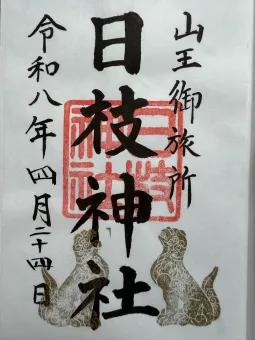 山王御旅所
日枝神社
令和八年四月二十四日
日枝神社